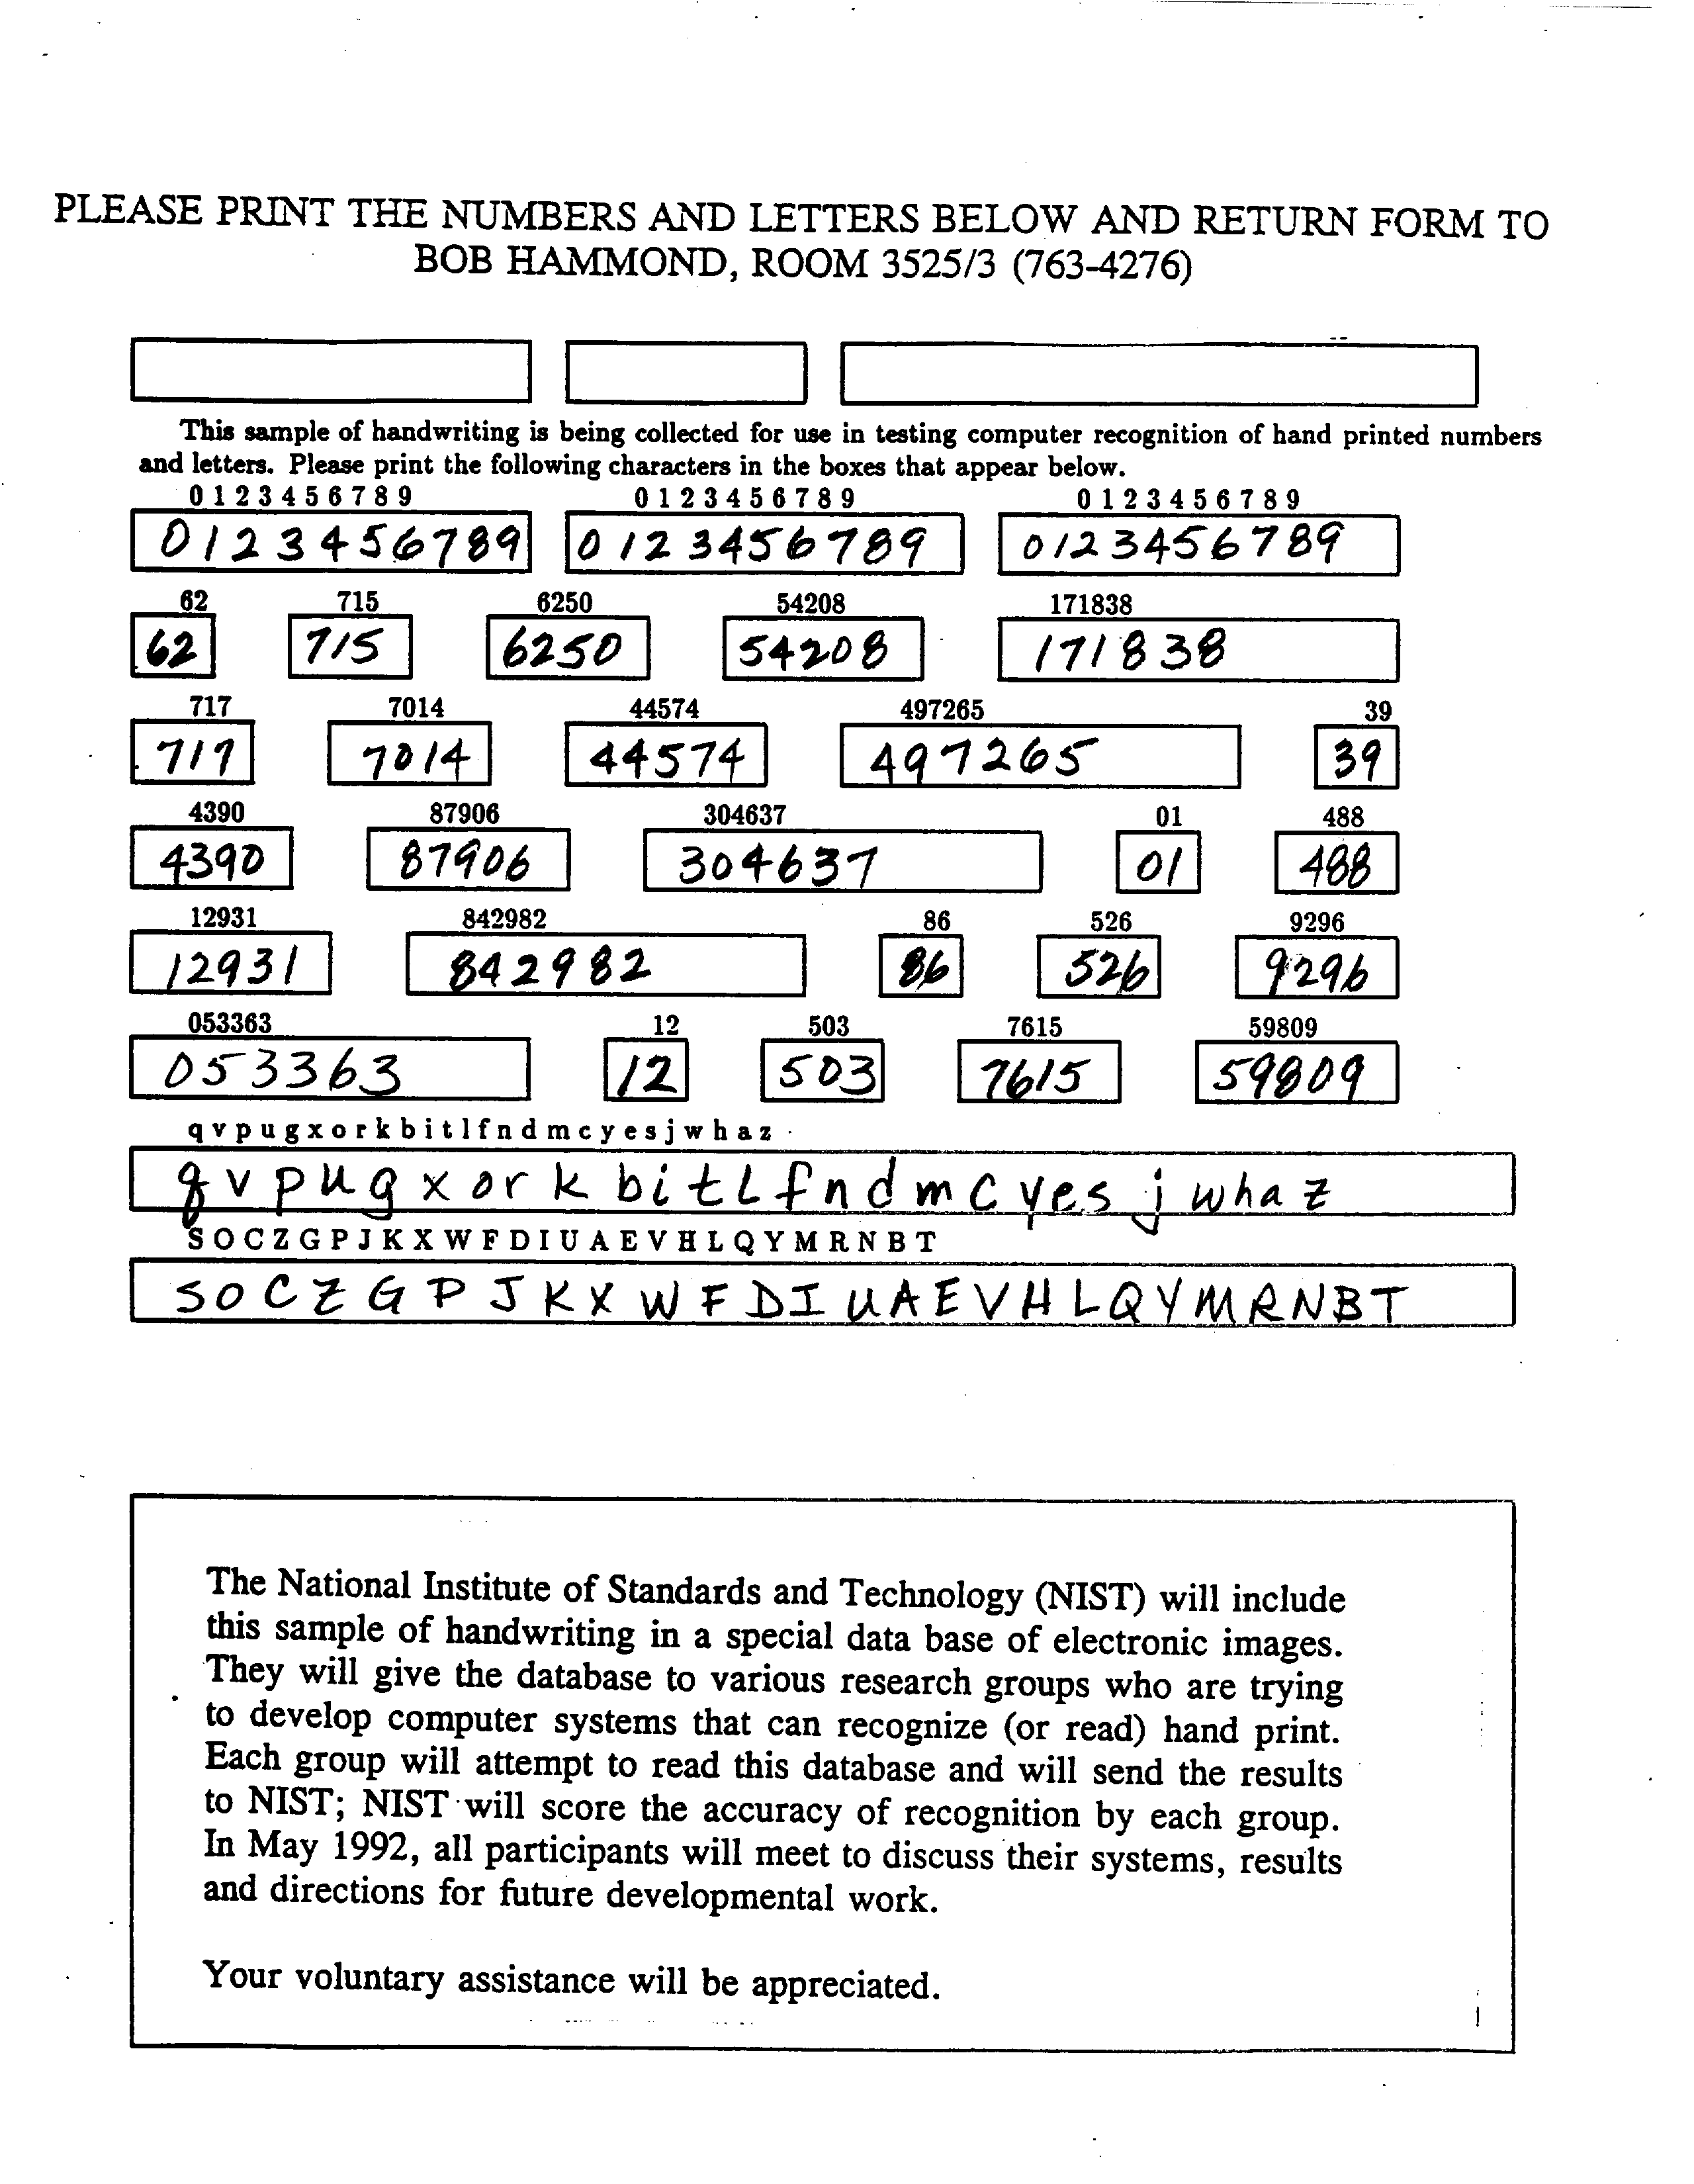 PLEASE PRINT THE NUMBERS AND LETTERS BELOW AND RETURN FORM TO
BOB HAMMOND, ROOM 3525/3 (763-4276)
This sample of handwriting is being collected for use in testing computer recognition of hand printed numbers
and letters. Please print the following characters in the boxes that appear below.
0 1 2 3 4 5 6 7 8 9 0 1 2 3 4 5 6 7 8 9 0 1 2 3 4 5 6 7 8 9
0123456789 0123456789 0123456789
62 715 6250 54208 171838
62 715 6250 54208 171838
717 7014 44574 497265 39
717 7014 44574 497265 39
4390 87906 304637 01 488
4390 87906 304637 01 488
12931 842982 86 526 9296
12931 842982 86 526 9296
053363 12 503 7615 59809
053363 12 503 7615 59809
q v p u g x o r k b i t l f n d m c y e s j w h a z
q v p u g x o r k b i t l f n d m c y e s j w h a z
S O C Z G P J K X W F D I U A E V H L Q Y M R N B T
S O C Z G P J K X W F D I U A E V H L Q Y M R N B T
The National Institute of Standards and Technology (NIST) will include
this sample of handwriting in a special data base of electronic images.
They will give the database to various research groups who are trying
to develop computer systems that can recognize (or read) hand print.
Each group will attempt to read this database and will send the results
to NIST; NIST will score the accuracy of recognition by each group.
In May 1992, all participants will meet to discuss their systems, results
and directions for future developmental work.
Your voluntary assistance will be appreciated.